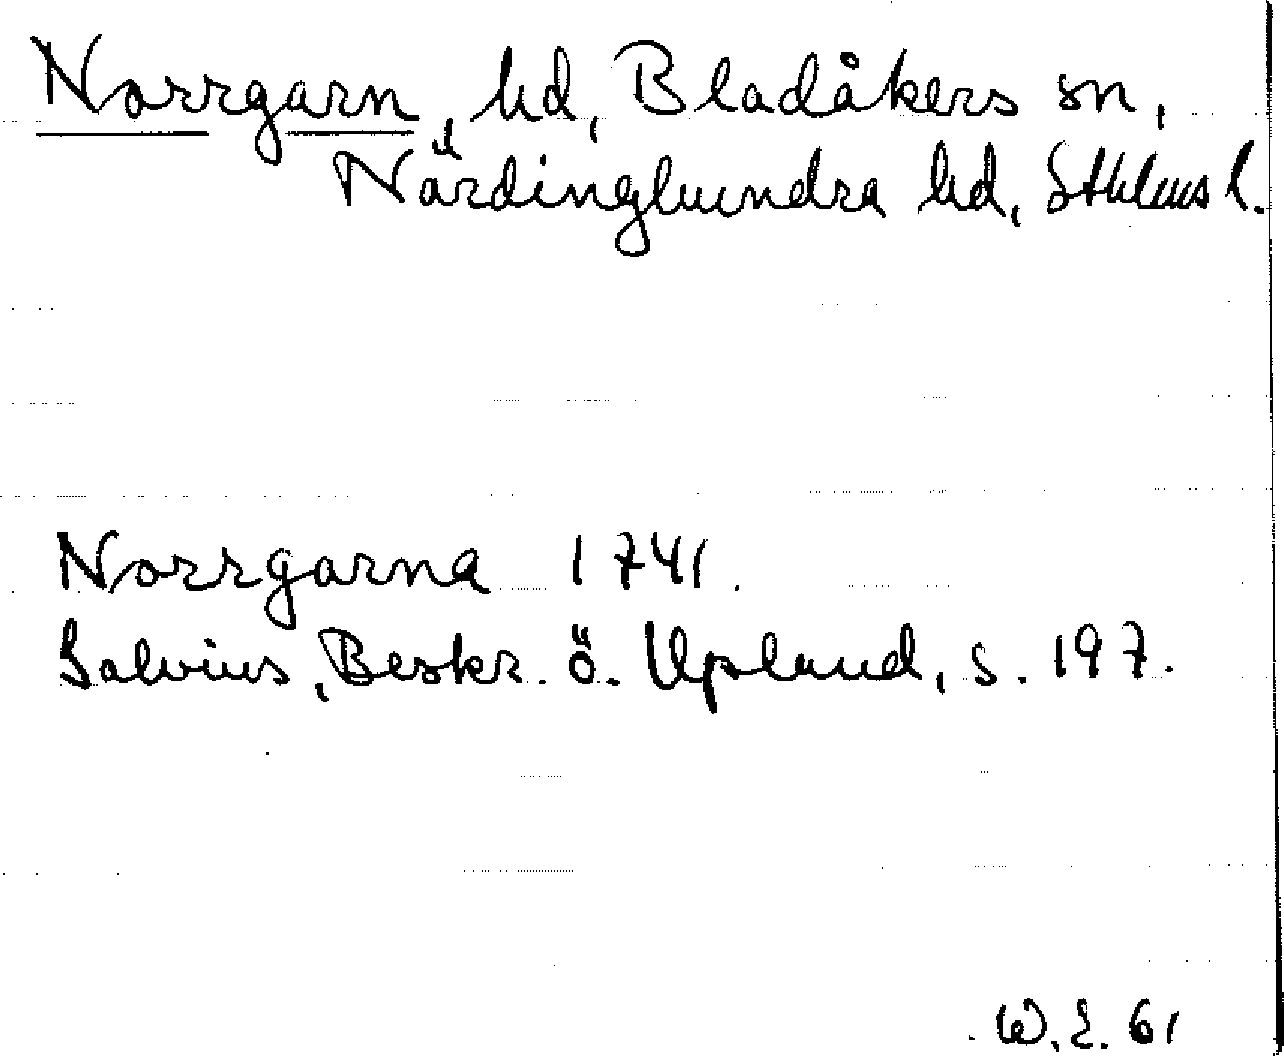 Norrgarn, hd, Bladåkers sn,
Närdinghundra hd, Sthlms l.
Norrgarna 1741.
Salvius, Beskr. ö. Upland, s. 197.
W. E. 61